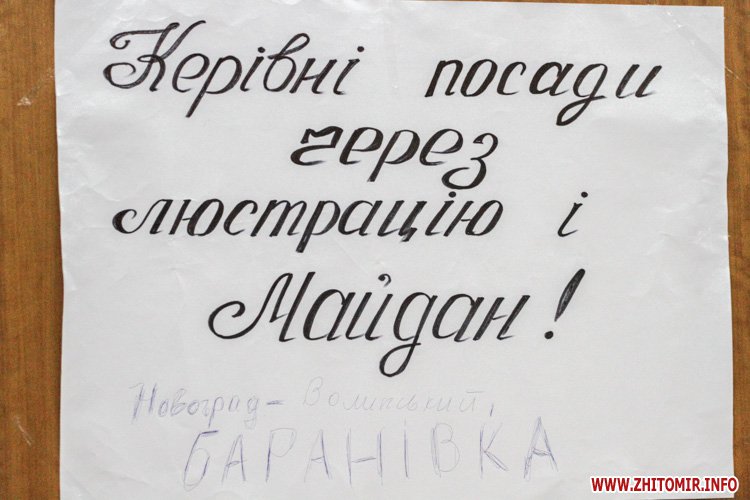 Керівні посади
через
люстрацію і
Майдан!
Новоград-Волинський,
БАРАНІВКА
WWW.ZHITOMIR.INFO